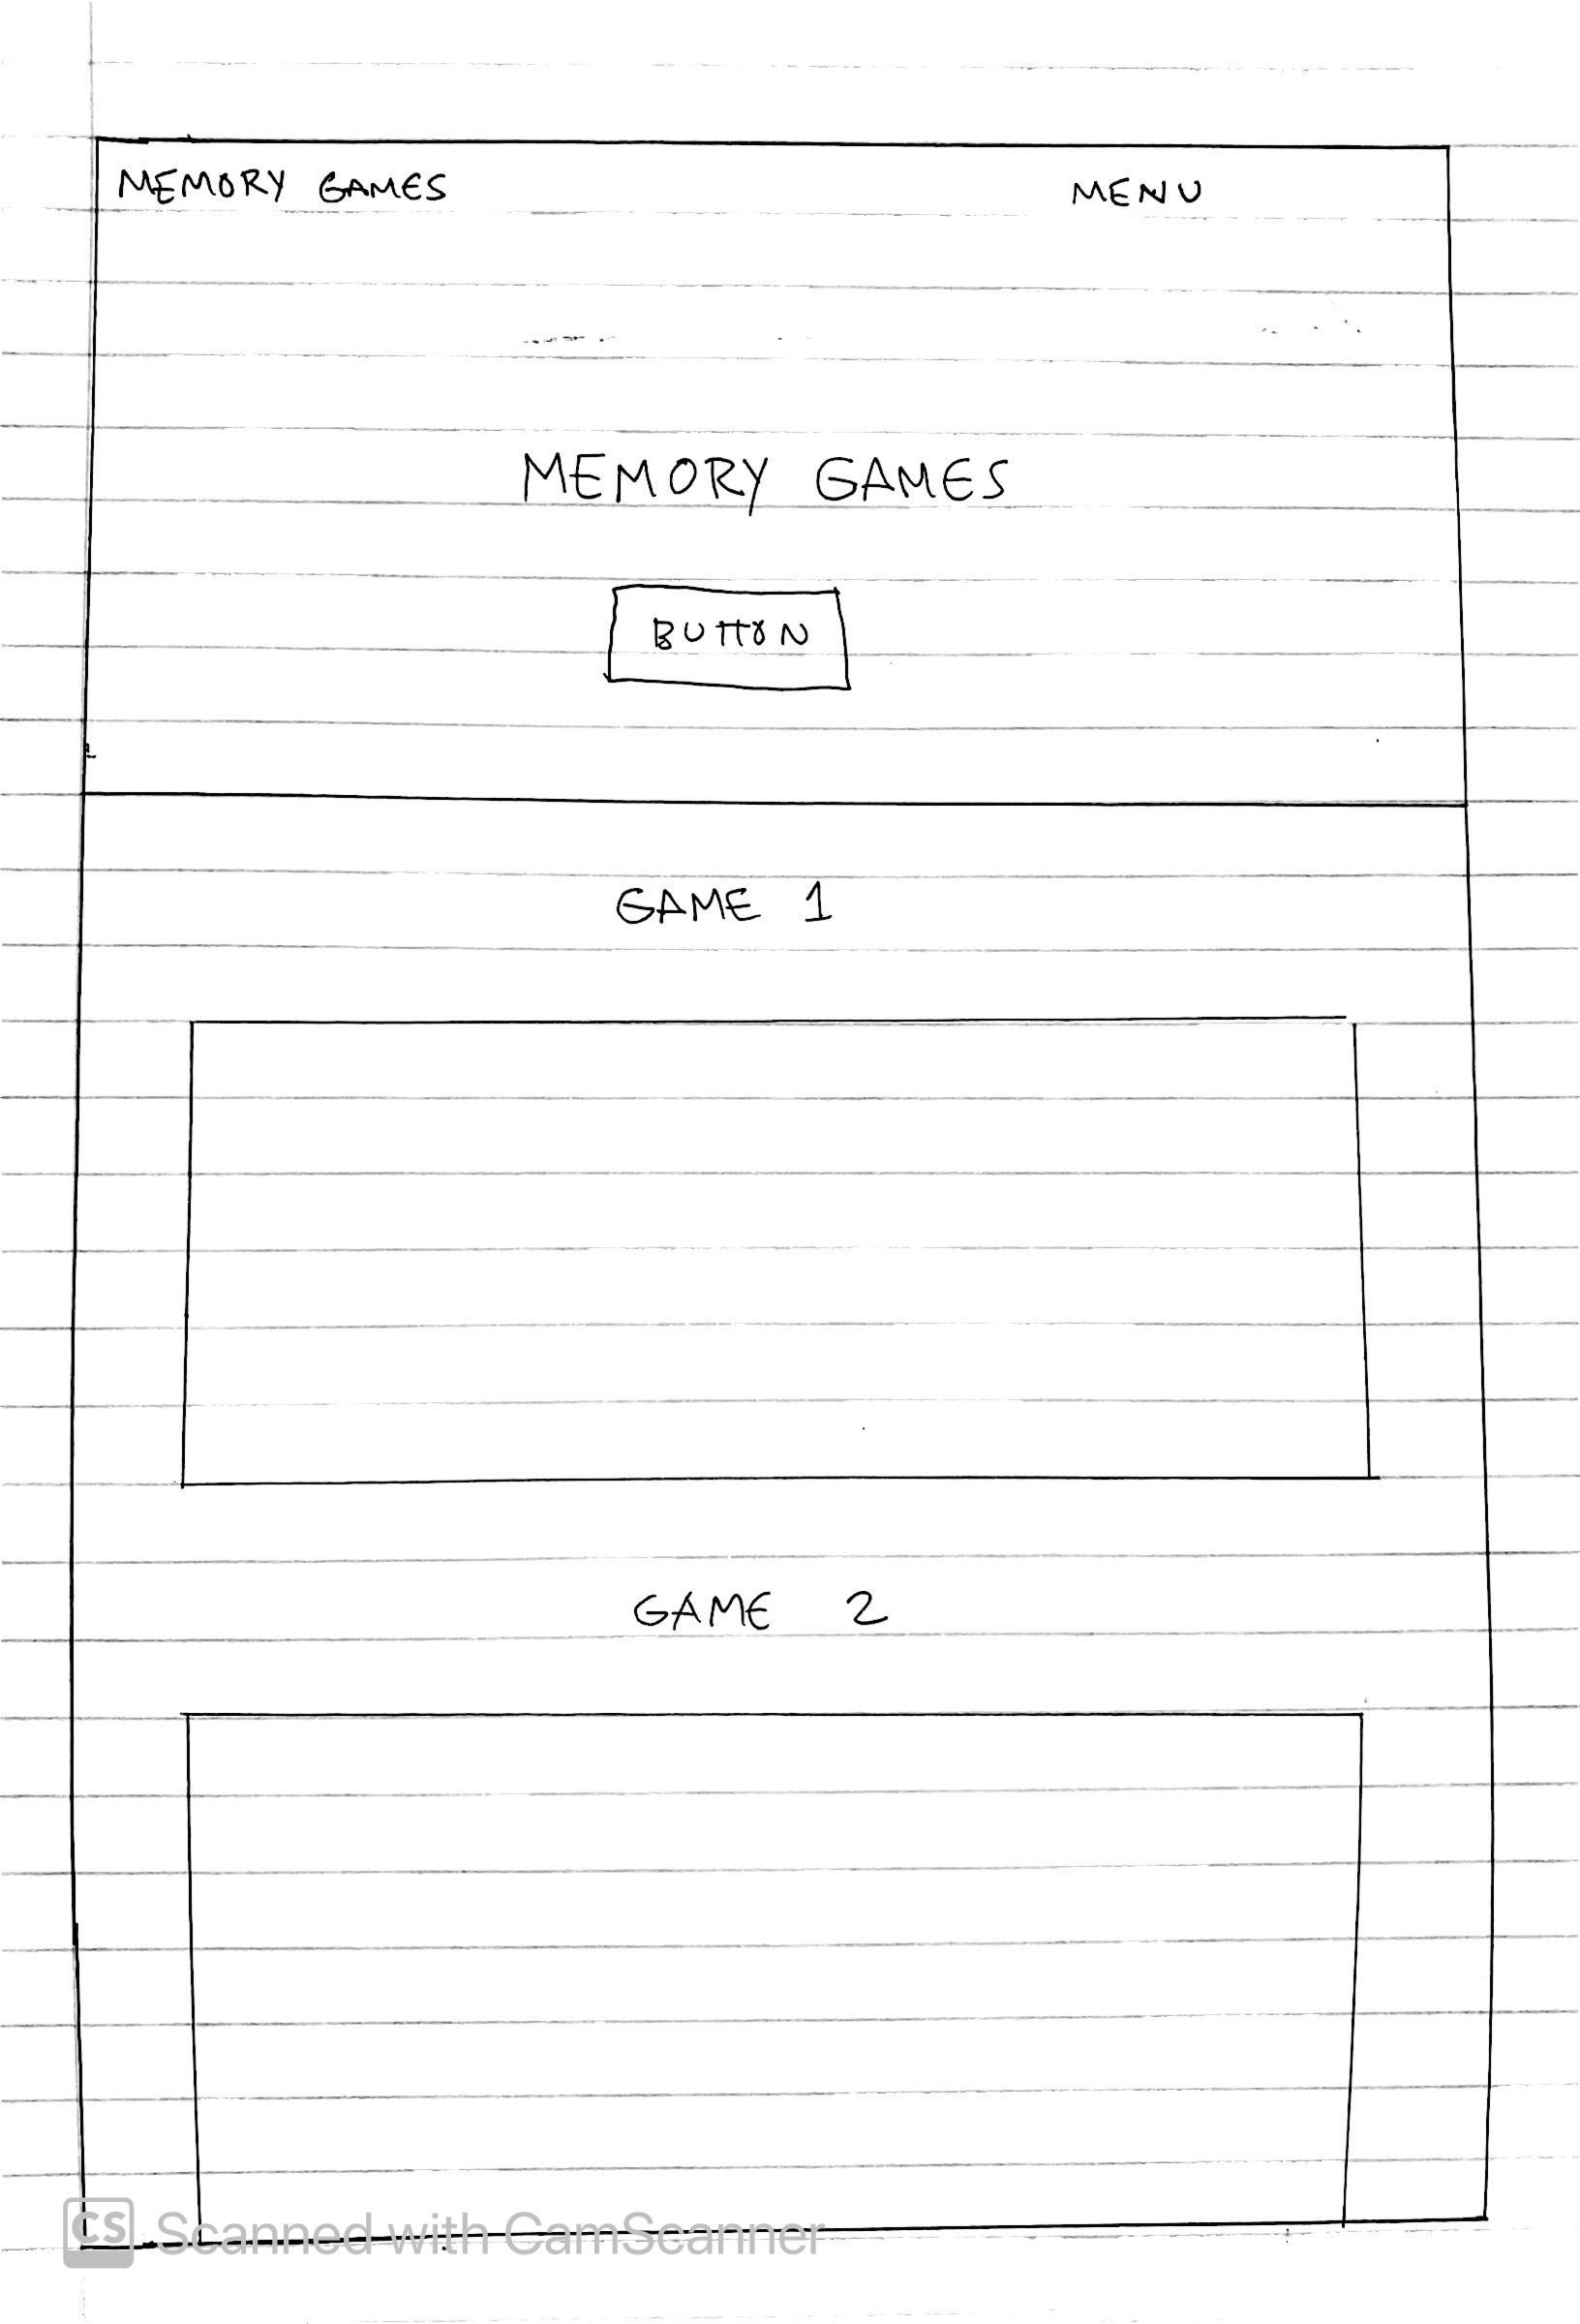 MEMORY GAMES MENU
MEMORY GAMES
BUTTON
GAME 1
GAME 2
CS Scanned with CamScanner